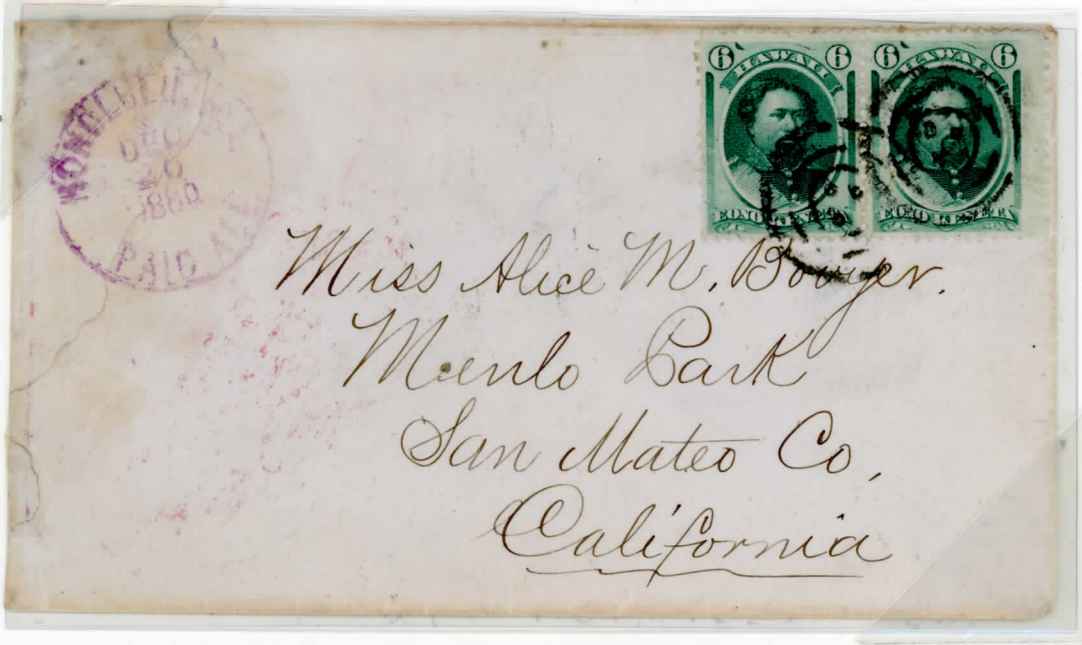 HONOLULU
DEC
1880
PAID ALL
6 6
6 6
Miss Alice M. Bowyer.
Menlo Park
San Mateo Co,
California